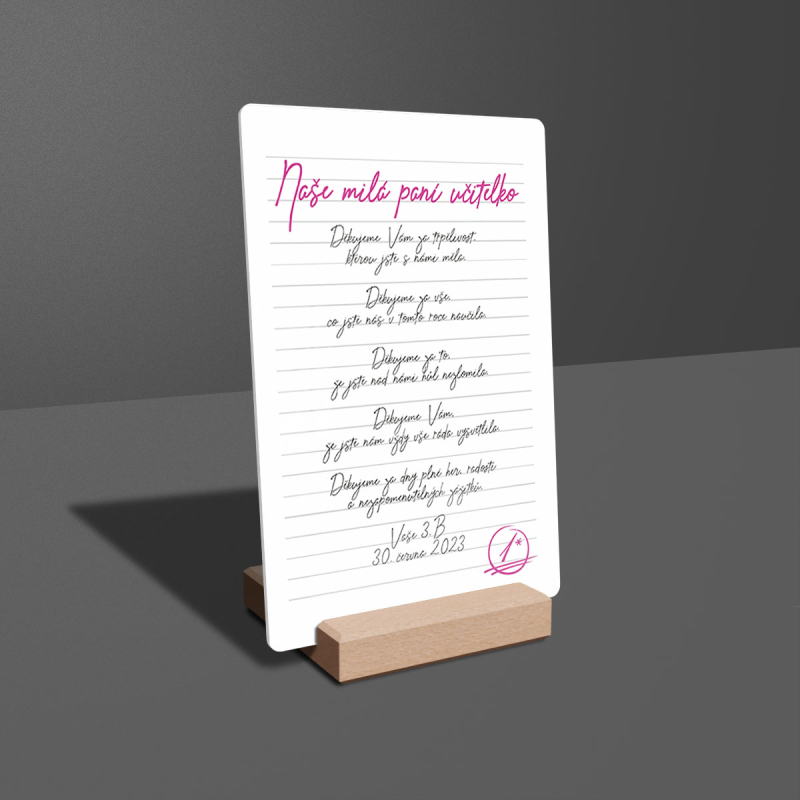 Naše milá paní učitelko
Děkujeme Vám za trpělivost,
kterou jste s námi měla.
Děkujeme za vše,
co jste nás v tomto roce naučila.
Děkujeme za to,
že jste nad námi hůl nezlomila.
Děkujeme Vám,
že jste nám vždy vše ráda vysvětlila.
Děkujeme za dny plné her, radosti
a nezapomenutelných zážitků.
Vaše 3.B
30. června 2023
1*